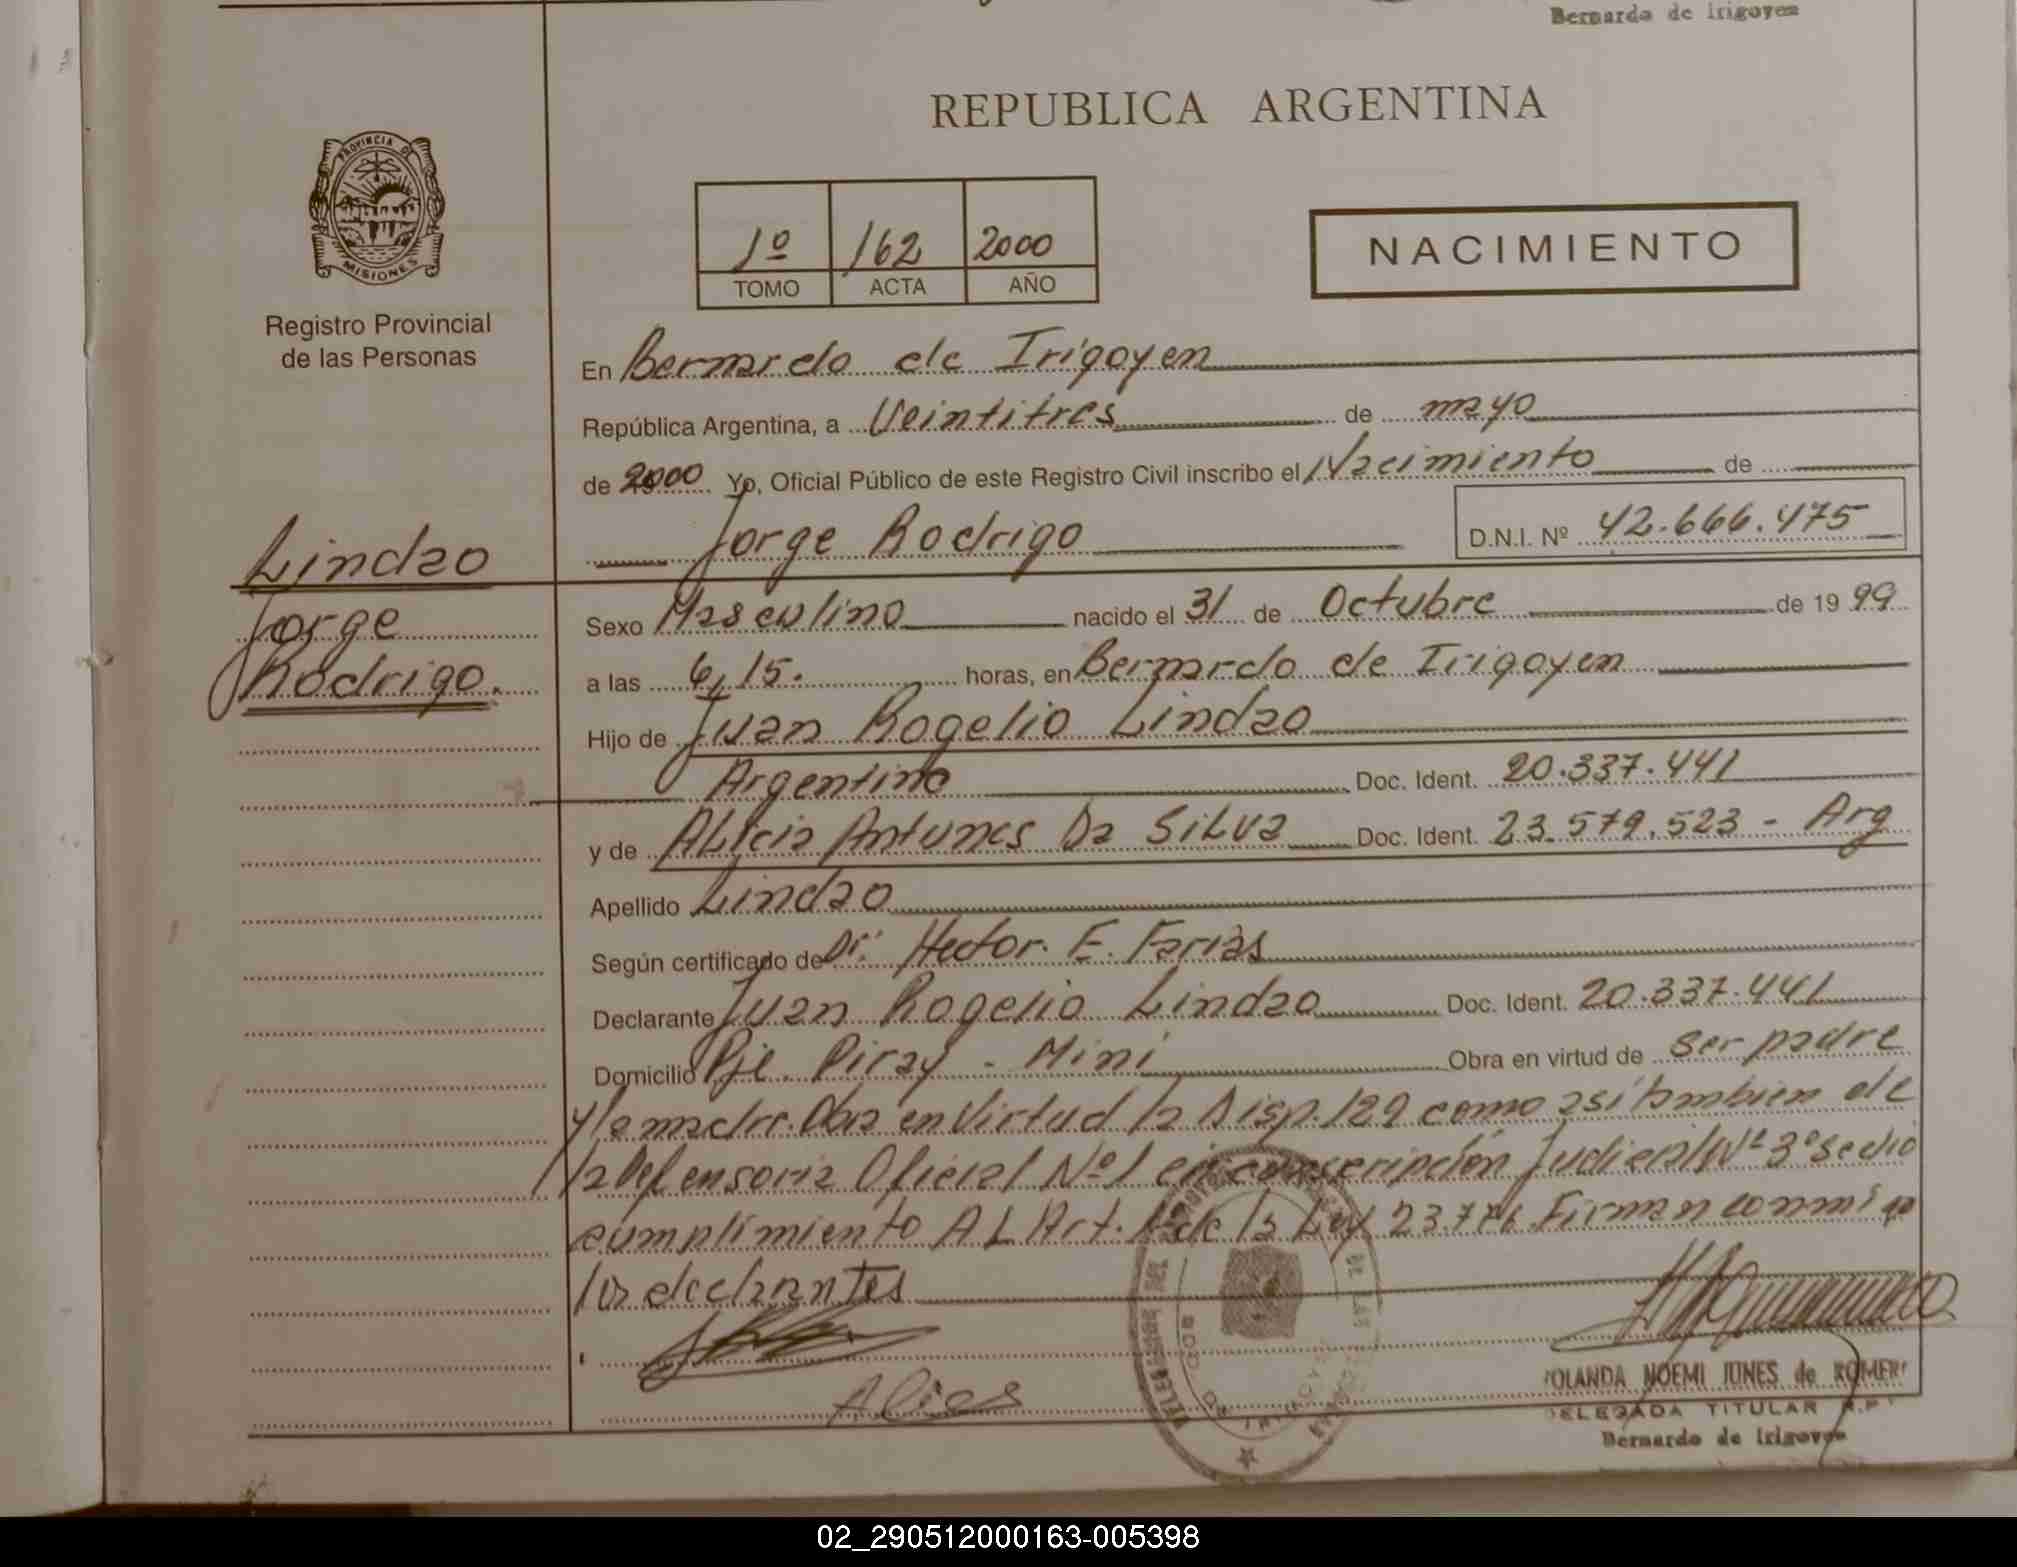 Bernardo de Irigoyen
REPUBLICA ARGENTINA
PROVINCIA DE
MISIONES
Registro Provincial
de las Personas
1º 162 2000
TOMO ACTA AÑO
NACIMIENTO
En Bernardo de Irigoyen
República Argentina, a Veintitres de mayo
de 2000 Yo, Oficial Público de este Registro Civil inscribo el Nacimiento de
Jorge Rodrigo D.N.I. Nº 42.666.475
Lindao
Jorge
Rodrigo.
Sexo Masculino nacido el 31 de Octubre de 19 99
a las 6,15. horas, en Bernardo de Irigoyen
Hijo de Juan Rogelio Lindao
Argentino Doc. Ident. 20.337.441
y de Alicia Antunes Da Silva Doc. Ident. 23.579.523 - Arg
Apellido Lindao
Según certificado de Dr. Hector. E. Farias
Declarante Juan Rogelio Lindao Doc. Ident. 20.337.441
Domicilio Pje. Piray - Mini Obra en virtud de ser padre
y la madre. Obra en Virtud la Disp. 129 como asi tambien de
la Defensoria Oficial Nº 1 circunscripción Judicial Nº 3º se dio
cumplimiento AL Art. de la Ley 23.776. Firman conmigo
los declarantes
Alicia
YOLANDA NOEMI JUNES de ROMERO
DELEGADA TITULAR R.P.
Bernardo de Irigoyen
02_290512000163-005398